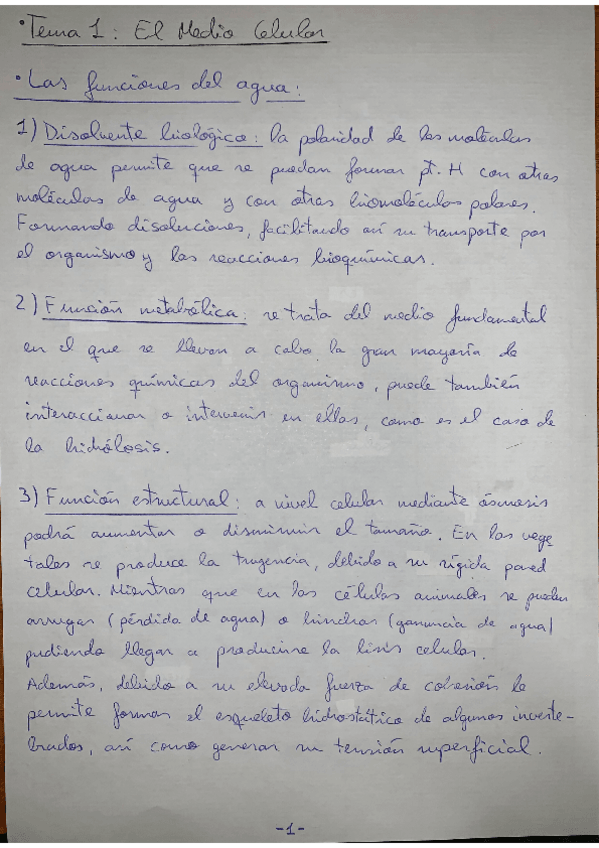 • Tema 1: El Medio Celular
• Las funciones del agua:
1) Disolvente biológico: la polaridad de las moléculas
de agua permite que se puedan formar pt. H con otras
moléculas de agua y con otras biomoléculas polares.
Formando disoluciones, facilitando así su transporte por
el organismo y las reacciones bioquímicas.
2) Función metabólica: se trata del medio fundamental
en el que se llevan a cabo la gran mayoría de
reacciones químicas del organismo, puede también
interaccionar o intervenir en ellas, como es el caso de
la hidrólosis.
3) Función estructural: a nivel celular mediante ósmosis
podrá aumentar o disminuir el tamaño. En las vege
tales se produce la trugencia, debido a su rígida pared
celular. Mientras que en las células animales se pueden
arrugar (pérdida de agua) o hinchar (ganancia de agua)
pudiendo llegar a producirse la lisis celular.
Además, debido a su elevada fuerza de cohesión le
permite formar el esqueleto hidrostático de algunos inverte-
brados, así como generar su tensión superficial.
-1-